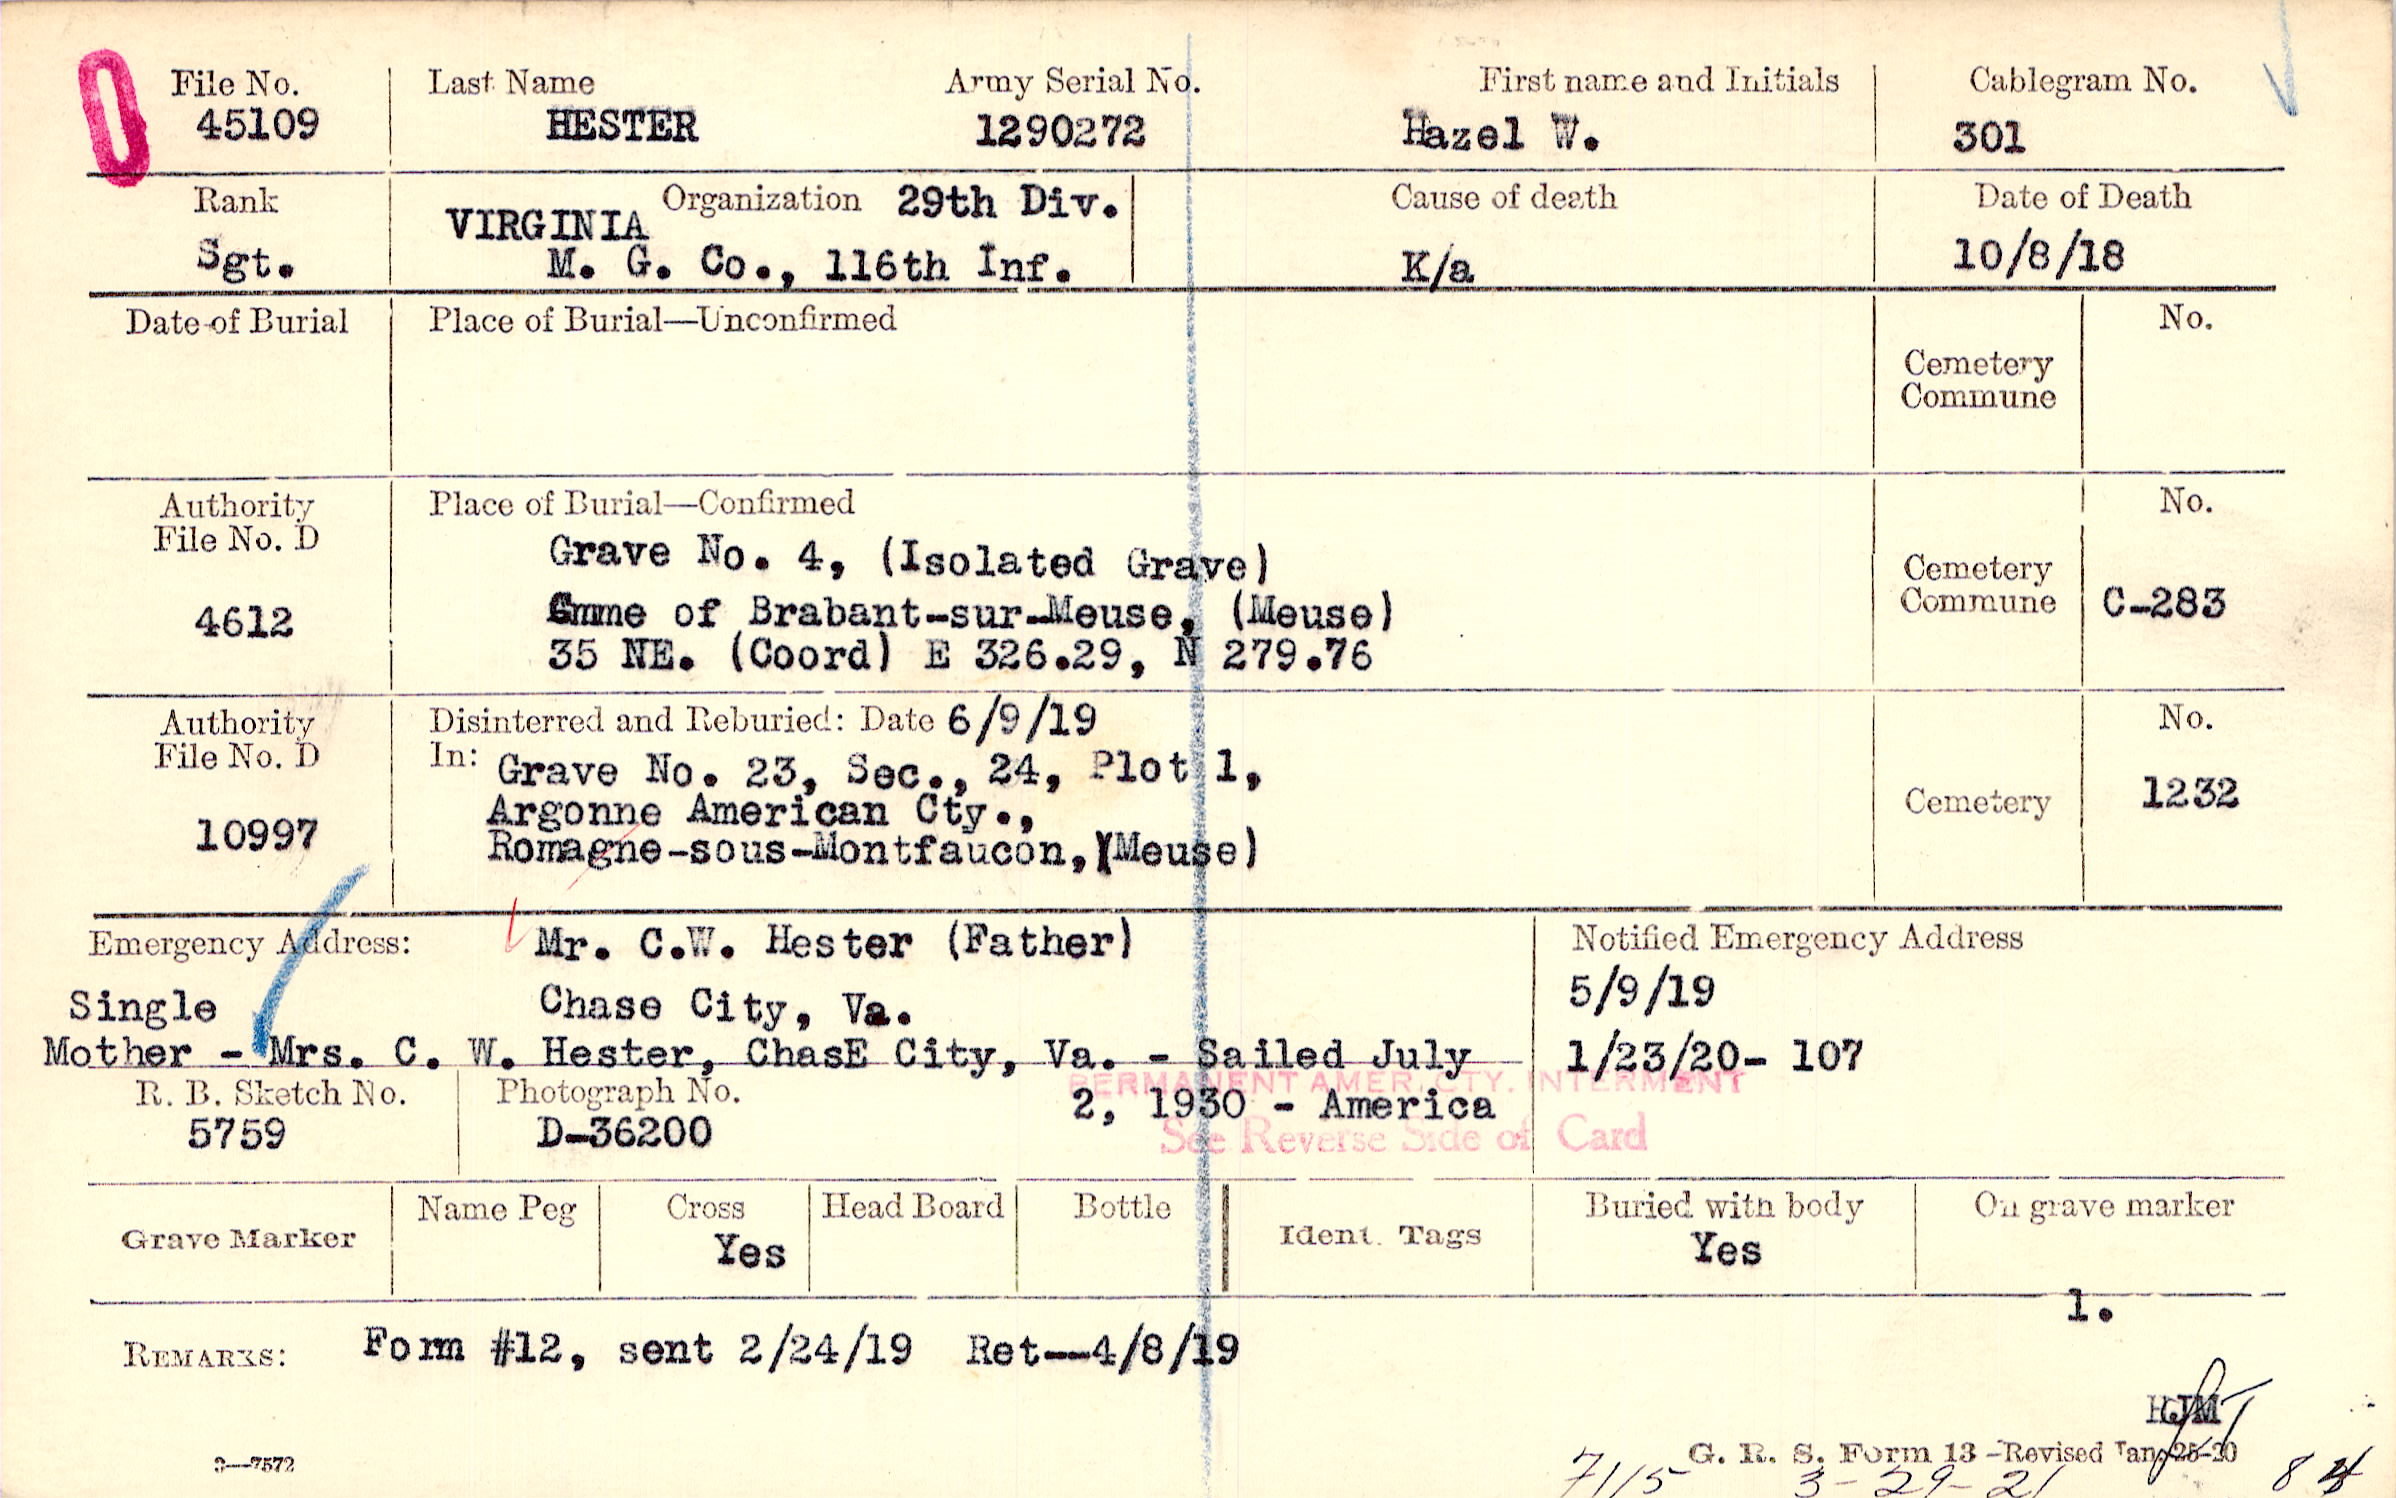 File No. Last Name Army Serial No. First name and Initials Cablegram No.
45109 HESTER 1290272 Hazel W. 301
Rank Organization 29th Div. Cause of death Date of Death
VIRGINIA
Sgt. M. G. Co., 116th Inf. K/a 10/8/18
Date of Burial Place of Burial—Unconfirmed No.
Cemetery
Commune
Authority Place of Burial—Confirmed No.
File No. D
Grave No. 4, (Isolated Grave)
Cemetery
4612 of Brabant-sur-Meuse, (Meuse) Commune C-283
35 NE. (Coord) E 326.29, N 279.76
Authority Disinterred and Reburied: Date 6/9/19 No.
File No. D In: Grave No. 23, Sec., 24, Plot 1,
Argonne American Cty., Cemetery 1232
10997 Romagne-sous-Montfaucon, (Meuse)
Emergency Address: Mr. C.W. Hester (Father) Notified Emergency Address
Single Chase City, Va. 5/9/19
Mother - Mrs. C. W. Hester, ChasE City, Va. - Sailed July 1/23/20- 107
PERMANENT AMER. CTY. INTERMENT
R. B. Sketch No. Photograph No. 2, 1930 - America
5759 D-36200 See Reverse Side of Card
Grave Marker Name Peg Cross Head Board Bottle Ident. Tags Buried with body On grave marker
Yes Yes
1.
REMARKS: Form #12, sent 2/24/19 Ret--4/8/19
HJM
3—7572 G. R. S. Form 13 -Revised Jan. 25-20
7115 3-29-21